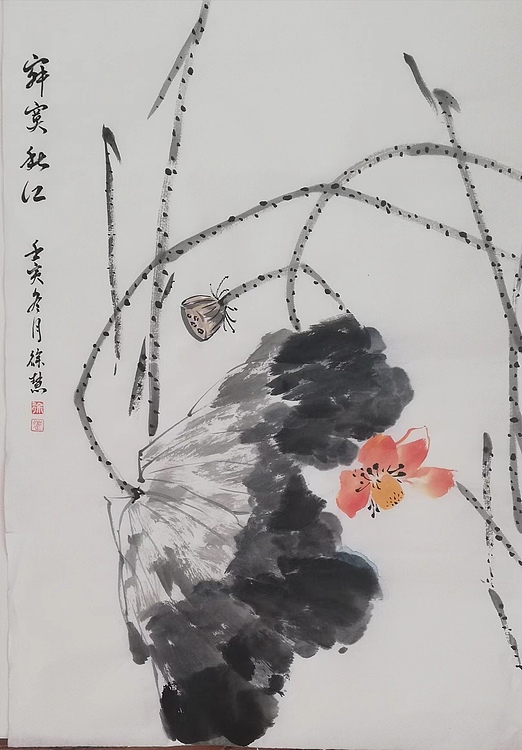 寂寞秋江
壬寅冬月徐慧